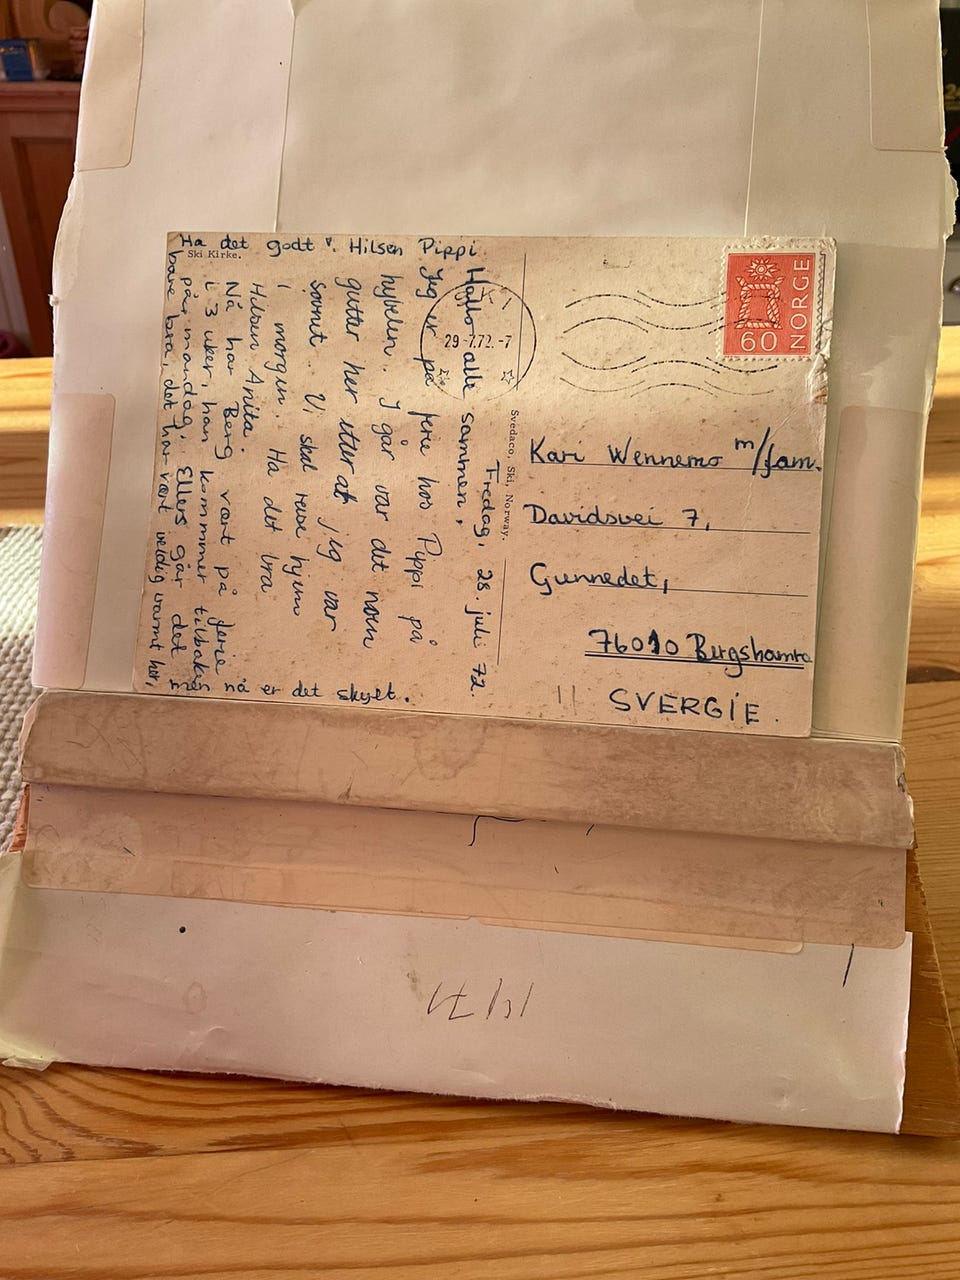 Ski Kirke.
Fredag, 28. juli 72.
Hallo alle sammen,
Jeg er på ferie hos Pippi på
hybelen. I går var det noen
gutter her etter at jeg var
sovnet. Vi skal reise hjem
i morgen. Ha det bra
Hilsen Anita.
Nå har Berg vært på ferie
i 3 uker, han kommer tilbake
på mandag. Ellers går det
bare bra, det har vært veldig varmt her,
men nå er det skyet.
Ha det godt! Hilsen Pippi
Svedaco, Ski, Norway.
SKI
29-7.72.-7
NORGE
60
Kari Wennemo m/fam.
Davidsvei 7,
Gunnedet,
76010 Bergshamra
SVERGIE.